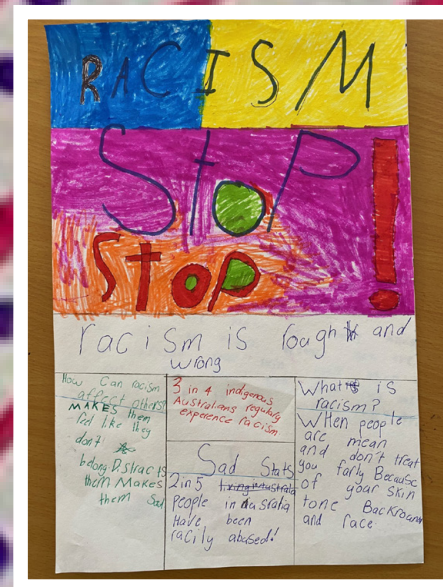 RACISM
Stop!
Stop
racism is rough and
wrong
How Can racism
affect others?
MAKES them
feel like they
don't
belong DIstracts
them Makes
them Sad
3 in 4 indigenous
Australians regularly
experience racism
Sad Stats
2 in 5
people in Australia
Have been
racily abused!
What is
racism?
WHen people
are mean
and don't treat
you farly Because
of your skin
tone Backround
and race